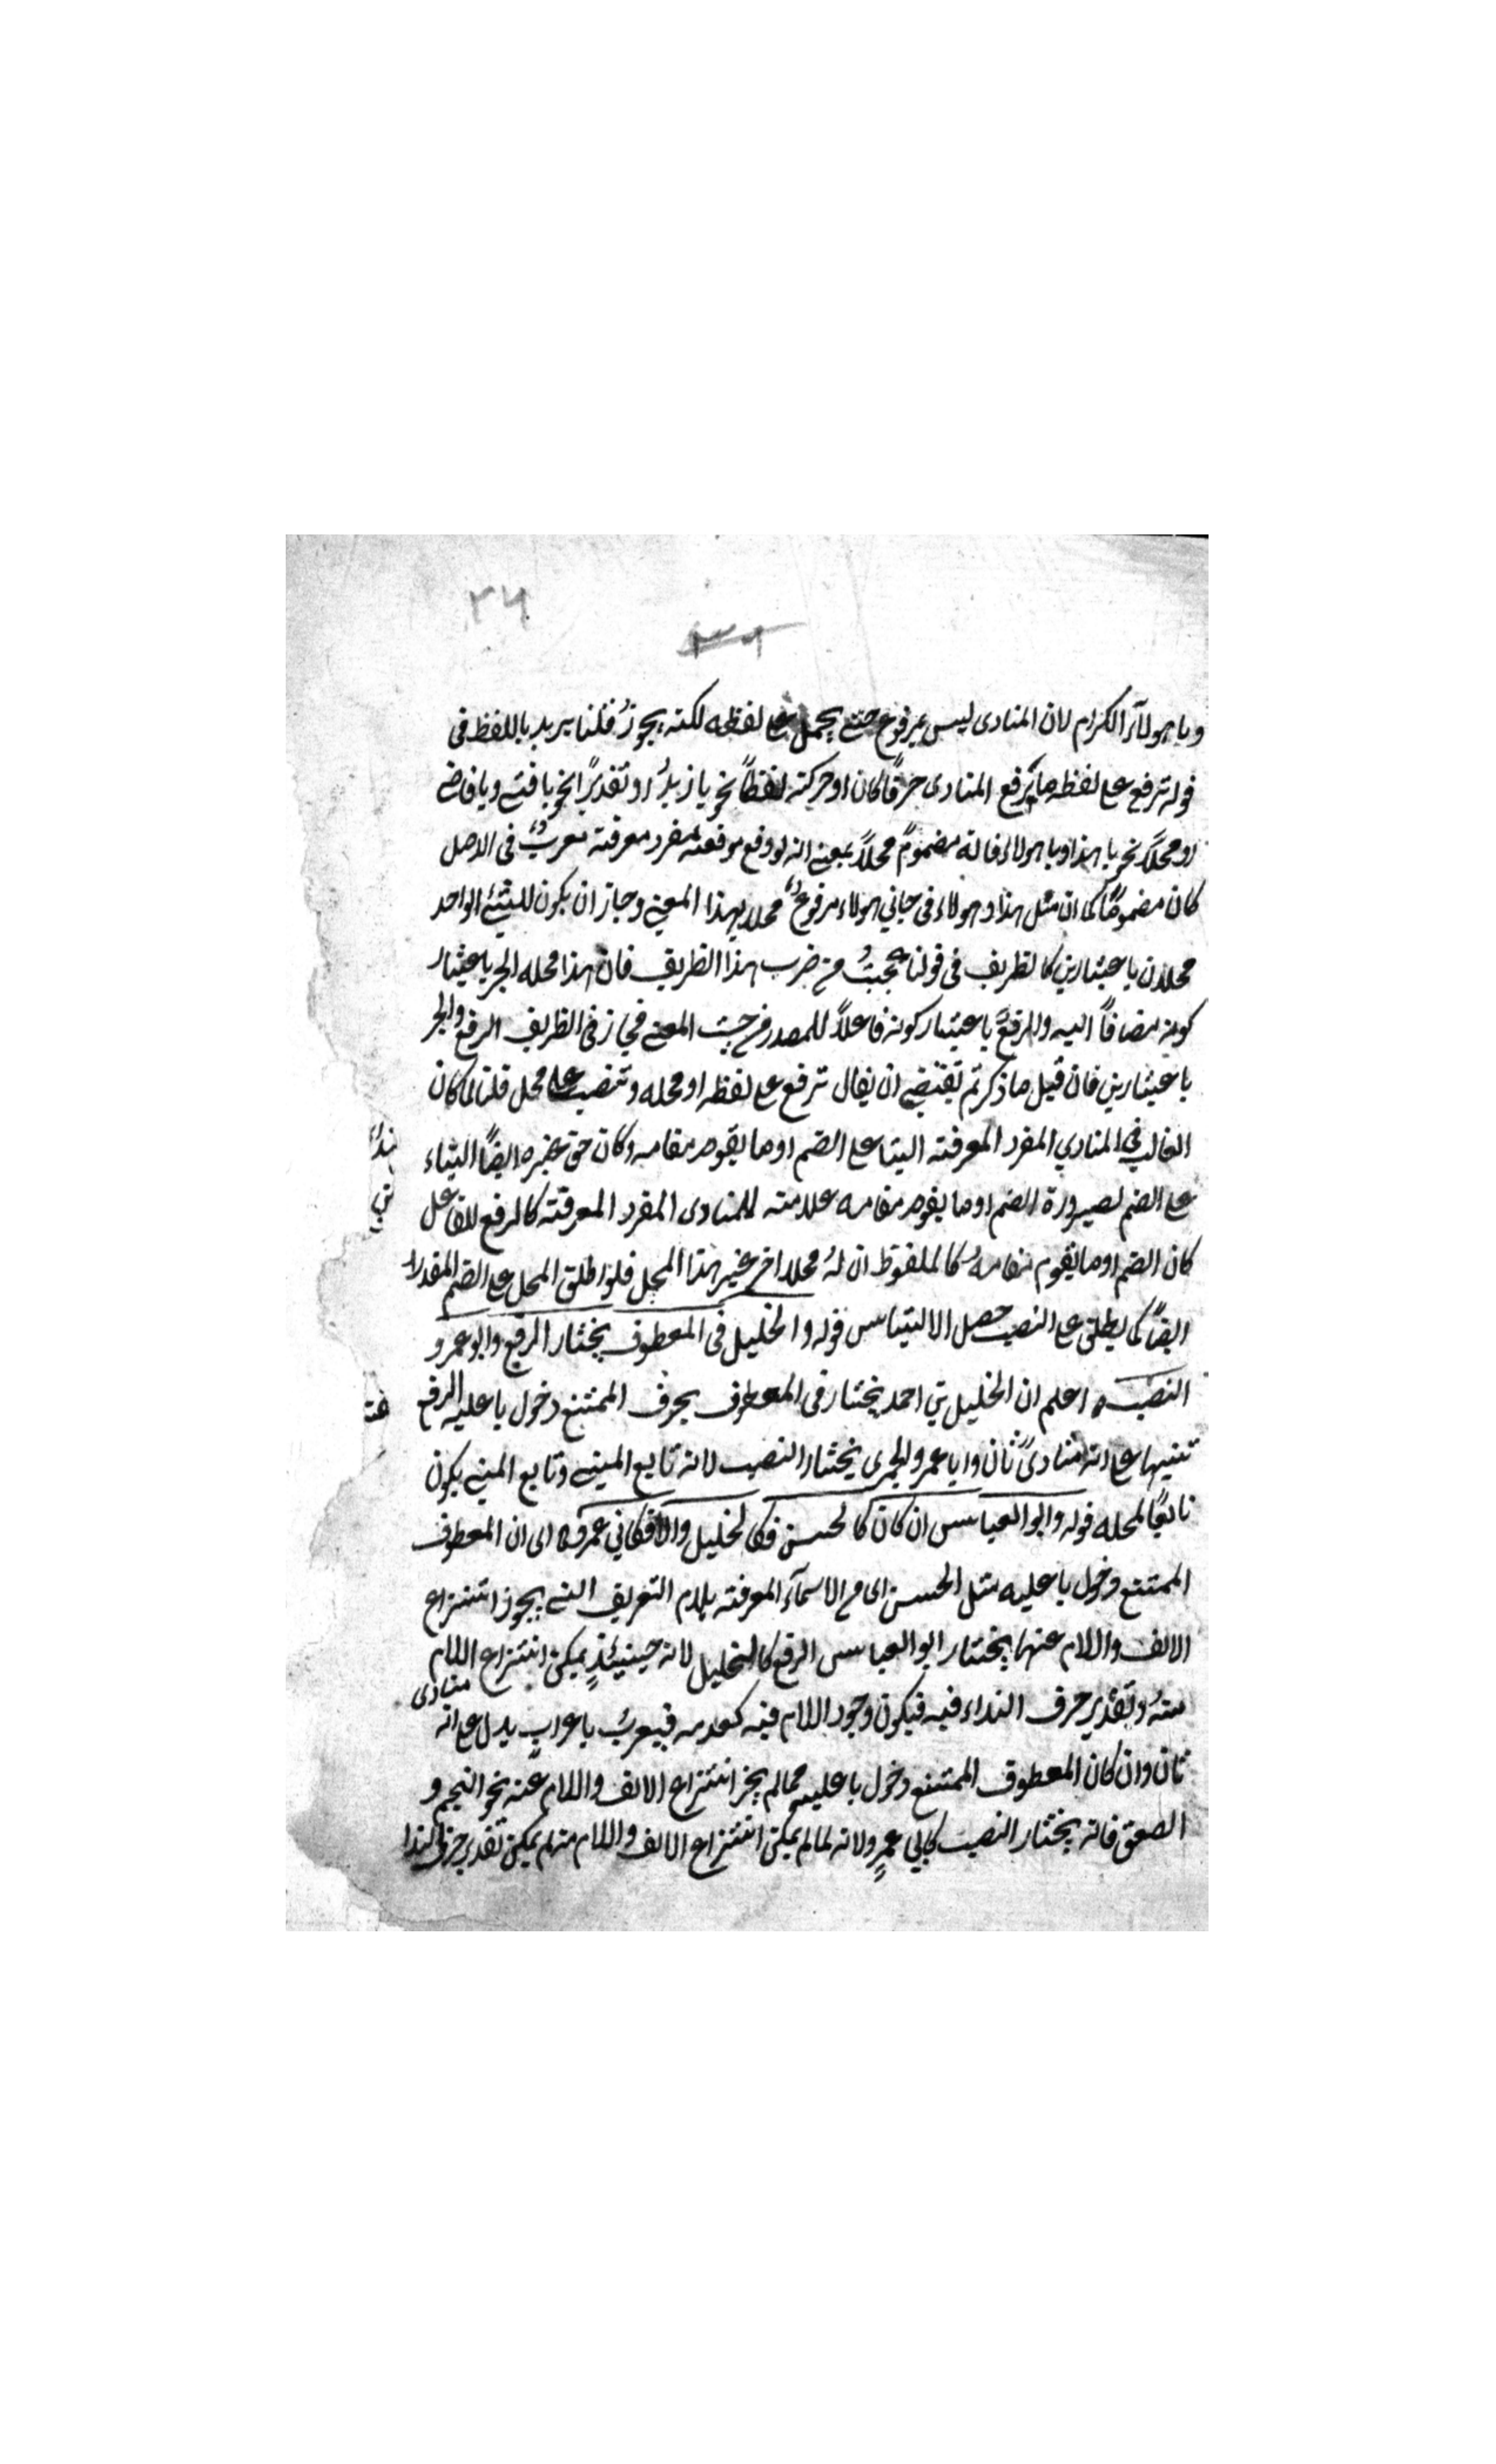 ٣٦
٣٦
ويا هولآء الكرام لان المنادى ليس بمرفوع حتى يحمل على لفظه لكنه يجوز قلنا يريد باللفظ فى
قوله ترفع على لفظه ما يرفع المنادى حرفًا كان او حركته لفظًا نحو يا زيدُ او تقديرًا نحو يا فتى ويا قاضى
او محلاً نحو يا هذا ويا هولاء فانه مضمومٌ محلاً بمعنى انه لو وقع موقعه مفرد معرفته معربٌ فى الاصل
كان مضمومًا كما ان مثل هذا وهولاء فى جاني هولاء مرفوعٌ محلا بهذا المعنى وجاز ان يكون للشئ الواحد
محلان باعتبارين كالظريف فى قولنا عجبتُ من ضرب هذا الظريف فان هذا محله الجر باعتبار
كونه مضافاً اليه والرفعُ باعتبار كونه فاعلاً للمصدر من حيث المعنى فجاز فى الظريف الرفع والجر
باعتبارين فان قيل ما ذكرتم يقتضى ان يقال ترفع على لفظه او محله وتنصب على محله قلنا لما كان
الغالب فى المنادي المفرد المعرفته البنا على الضم او ما يقوم مقامه وكان حق غيره ايضًا البناء
على الضم لصيرورة الضم او ما يقوم مقامه علامته للمنادى المفرد المعرفته كالرفع للفاعل
كان الضم او ما يقوم مقامهُ كالملفوظ ان لهُ محلا اخر غير هذا المحل فلو اطلق المحل على الضم المقدر
ايضًا كما يطلق على النصب حصل الالتباس قوله والخليل فى المعطوف يختار الرفع وابو عمرو
النصب اعلم ان الخليل بن احمد يختار فى المعطوف بحرف الممتنع دخول يا عليه الرفع
تنبيها على انه منادىً ثان وابا عمرو الجرمى يختار النصب لانه تابع المبنى وتابع المبنى يكون
تابعًا لمحله قوله وابو العباس ان كان كالحسن فكالخليل والا فكابي عمرو اى ان المعطوف
الممتنع دخول يا عليه مثل الحسن اى من الاسمآء المعرفته بلام التعريف التى يجوز انتزاع
الالف واللام عنها يختار ابو العباس الرفع كالخليل لانه حينيئذٍ يمكن انتزاع اللام
منهُ وتقدير حرف النداء فيه فيكون وجود اللام فيه كعدمه فيعربُ باعرابٍ يدل على انه منادى
ثان وان كان المعطوف الممتنع دخول يا عليه مما لم يجز انتزاع الالف واللام عنه نحو النجم و
الصعق فانه يختار النصب كابي عمرٍو لانه لما لم يمكن انتزاع الالف واللام منه لم يمكن تقدير حرف الندا